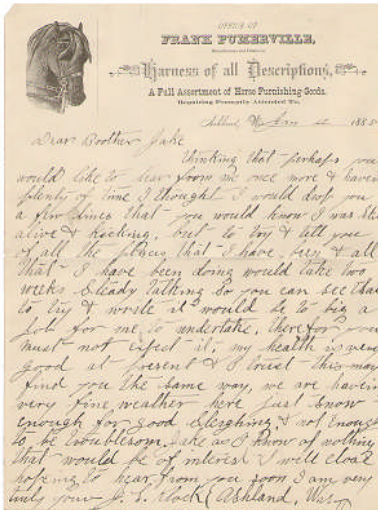 OFFICE OF
FRANK PUMERVILLE,
Manufacturer and Dealer in
Harness of all Descriptions,
A Full Assortment of Horse Furnishing Goods.
Repairing Promptly Attended To.
Ashland, Wis Jan 188
Dear Brother Jake
thinking that perhaps you
would like to hear from me once more & haveing
plenty of time I thought I would drop you
a few lines that you would know I was still
alive & kicking, but to try & tell you
of all the places that I have been & all
that I have been doing would take two
weeks steady talking so you can see that
to try & write it would be to big a
Job for me to undertake. therefor you
must not expect it. my health is very
good at present & I trust this may
find you the same way, we are haveing
very fine weather here just snow
enough for good sleighing & not enough
to be troublesom. Jake as I know of nothing
that would be of interest I will close
hopeing to hear from you soon I am very
truly yours J. E. Klock (Ashland, Wis